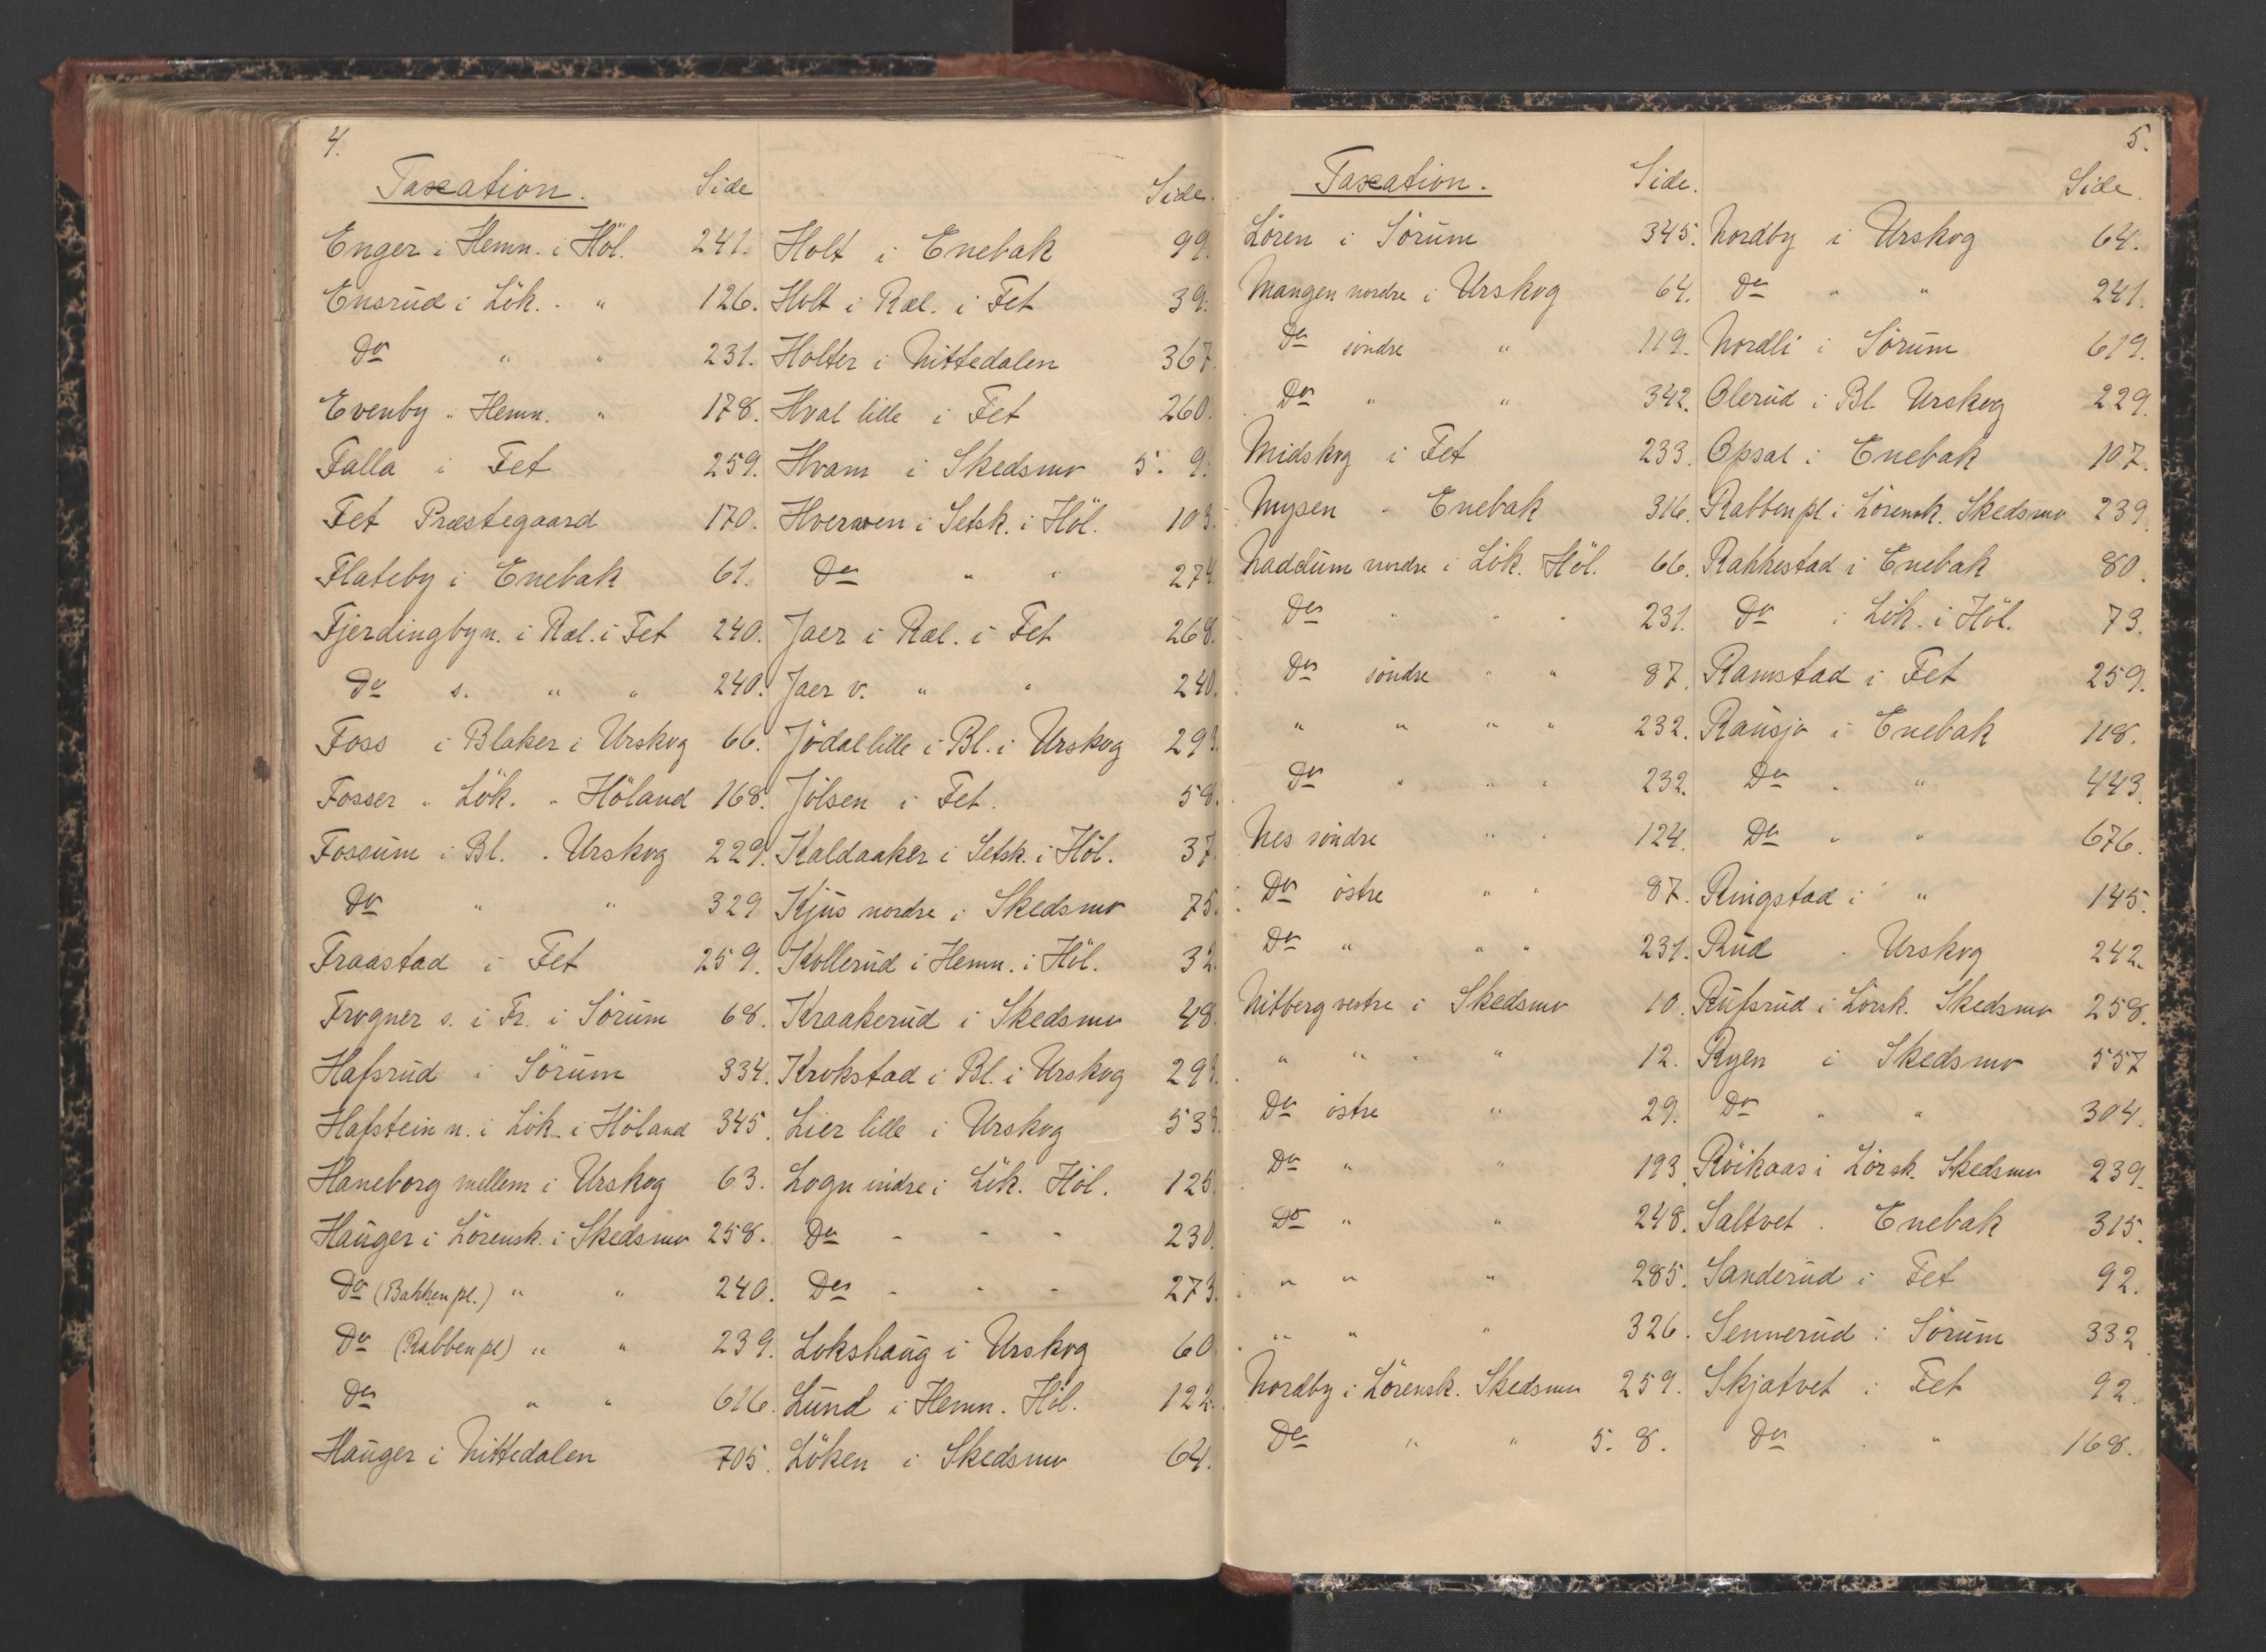 4.
Taxation. Side
Enger i Hemn. i Höl. 241.
Ensrud i Lök. " 126.
Do " " 231.
Evenby " Hemn. " 178.
Falla i Fet 259.
Fet Præstegaard 170.
Flateby i Enebak 61.
Fjerdingby n. i Ræl. i Fet 240.
Do s. " " 240.
Foss i Blaker i Urskog 66.
Fosser " Lök. " Höland 168.
Fossum i Bl. " Urskog 229.
Do " " 329
Fraastad i Fet 259.
Frogner s. i Fr. i Sörum 68.
Hafsrud i Sörum 334.
Hafstein n. i Lök i Höland 345.
Haneborg mellem i Urskog 63.
Hauger i Lörensk. i Skedsmo 258.
Do (Bakken pl.) " " 240.
Do (Rabben pl) " " 239.
Do " " 616.
Hauger i Nittedalen 705.
Side.
Holt i Enebak 99.
Holt i Ræl. i Fet 39.
Holter i Nittedalen 367.
Hval lille i Fet 260.
Hvam i Skedsmo 5. 9.
Hverven i Setsk. i Höl. 103.
Do " " 274.
Jaer i Ræl. i Fet 268.
Jaer v. " " 240.
Jödal lille i Bl. i Urskog 293.
Jölsen i Fet. 58.
Kaldaaker i Setsk. i Höl. 37
Kjus nordre i Skedsmo 75.
Kollerud i Hemn. i Höl. 32.
Kraakerud i Skedsmo 48.
Krokstad i Bl. i Urskog 293.
Lier lille i Urskog 533.
Logn indre i Lök. Höl. 125.
Do - - - 230.
Do - - - 273.
Lokshaug i Urskog 60.
Lund i Hemn. Höl. 122.
Löken i Skedsmo 64.
5.
Taxation. Side.
Lören i Sörum 345.
Mangen nordre i Urskog 64.
Do söndre " 119.
Do " " 342.
Midskog i Fet 233.
Mysen " Enebak 316.
Naddum nordre i Lök. Höl. 66.
Do " " " 231.
Do söndre " " 87.
" " " " 232.
Do " " " 232.
Nes söndre " " 124.
Do östre " " 87.
Do " " " 231.
Nitberg vestre i Skedsmo 10.
" " " " 12.
Do östre " 29.
Do " " 193.
Do " " 248.
" " " 285.
" " " 326.
Nordby i Lörensk. Skedsmo 259.
Do " " 5. 8.
Side.
Nordby i Urskog 64.
Do " " 241.
Nordli i Sörum 619.
Olerud i Bl. Urskog 229.
Opsal i Enebak 107.
Rabben pl i Lörensk. Skedsmo 239.
Rakkestad i Enebak 80.
Do i Lök. i Höl. 73.
Ramstad i Fet 259.
Rausjø i Enebak 118.
Do " " 443.
Do " " 676.
Ringstad i " 145.
Rud " Urskog 242.
Rufsrud i Lörsk. Skedsmo 258.
Ryen i Skedsmo 557
Do " " 304.
Röikaas i Lörsk. Skedsmo 239.
Saltvet . Enebak 315.
Sanderud i Fet 92.
Sennerud i Sörum 332.
Skjatvet i Fet 92.
Do " " 168.